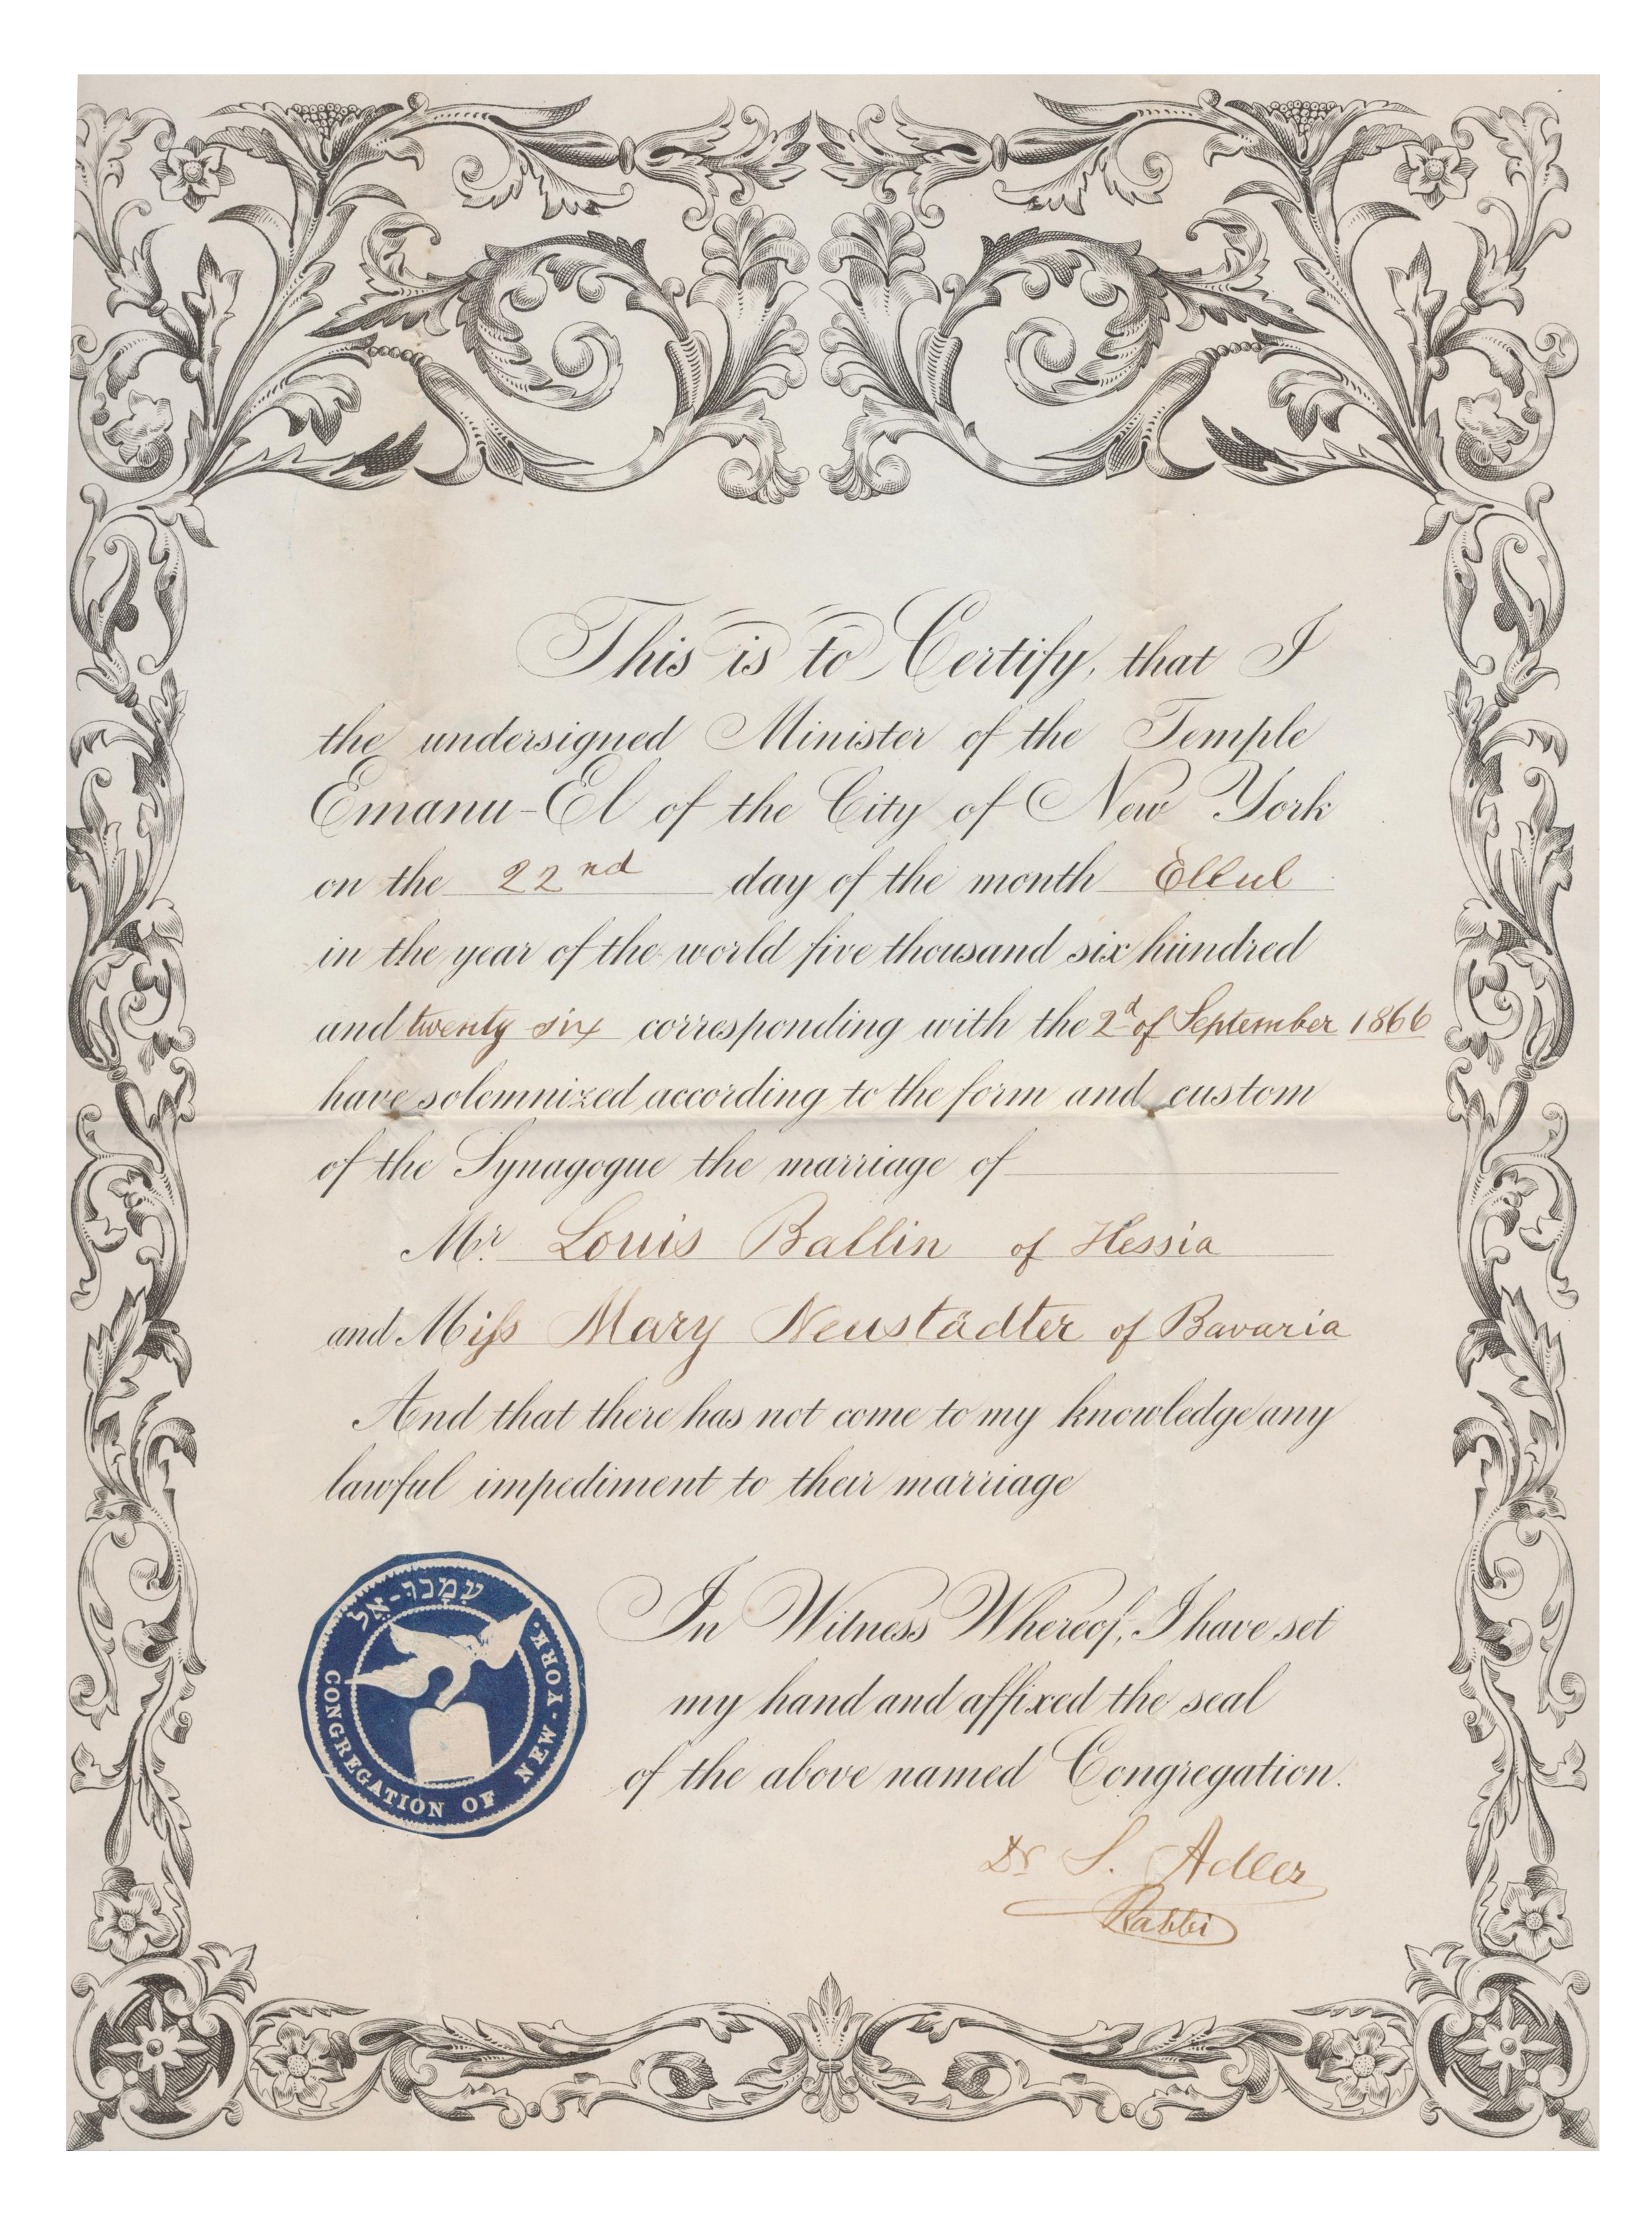 This is to Certify, that I
the undersigned Minister of the Temple
Emanu-El of the City of New York
on the 22nd day of the month Ellul
in the year of the world five thousand six hundred
and twenty six corresponding with the 2d of September 1866
have solemnized according to the form and custom
of the Synagogue the marriage of
Mr. Louis Ballin of Hessia
and Miss Mary Neustädter of Bavaria
And that there has not come to my knowledge any
lawful impediment to their marriage
עִמָנוּ-אֵל
CONGREGATION OF NEW-YORK.
In Witness Whereof, I have set
my hand and affixed the seal
of the above named Congregation.
Dr S. Adler
Rabbi